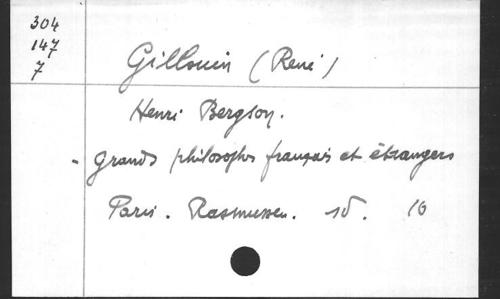 304
147
7
Gillouin (René)
Henri Bergson.
- Grands philosophes français et étrangers
Paris. Rasmussen. sd. 16